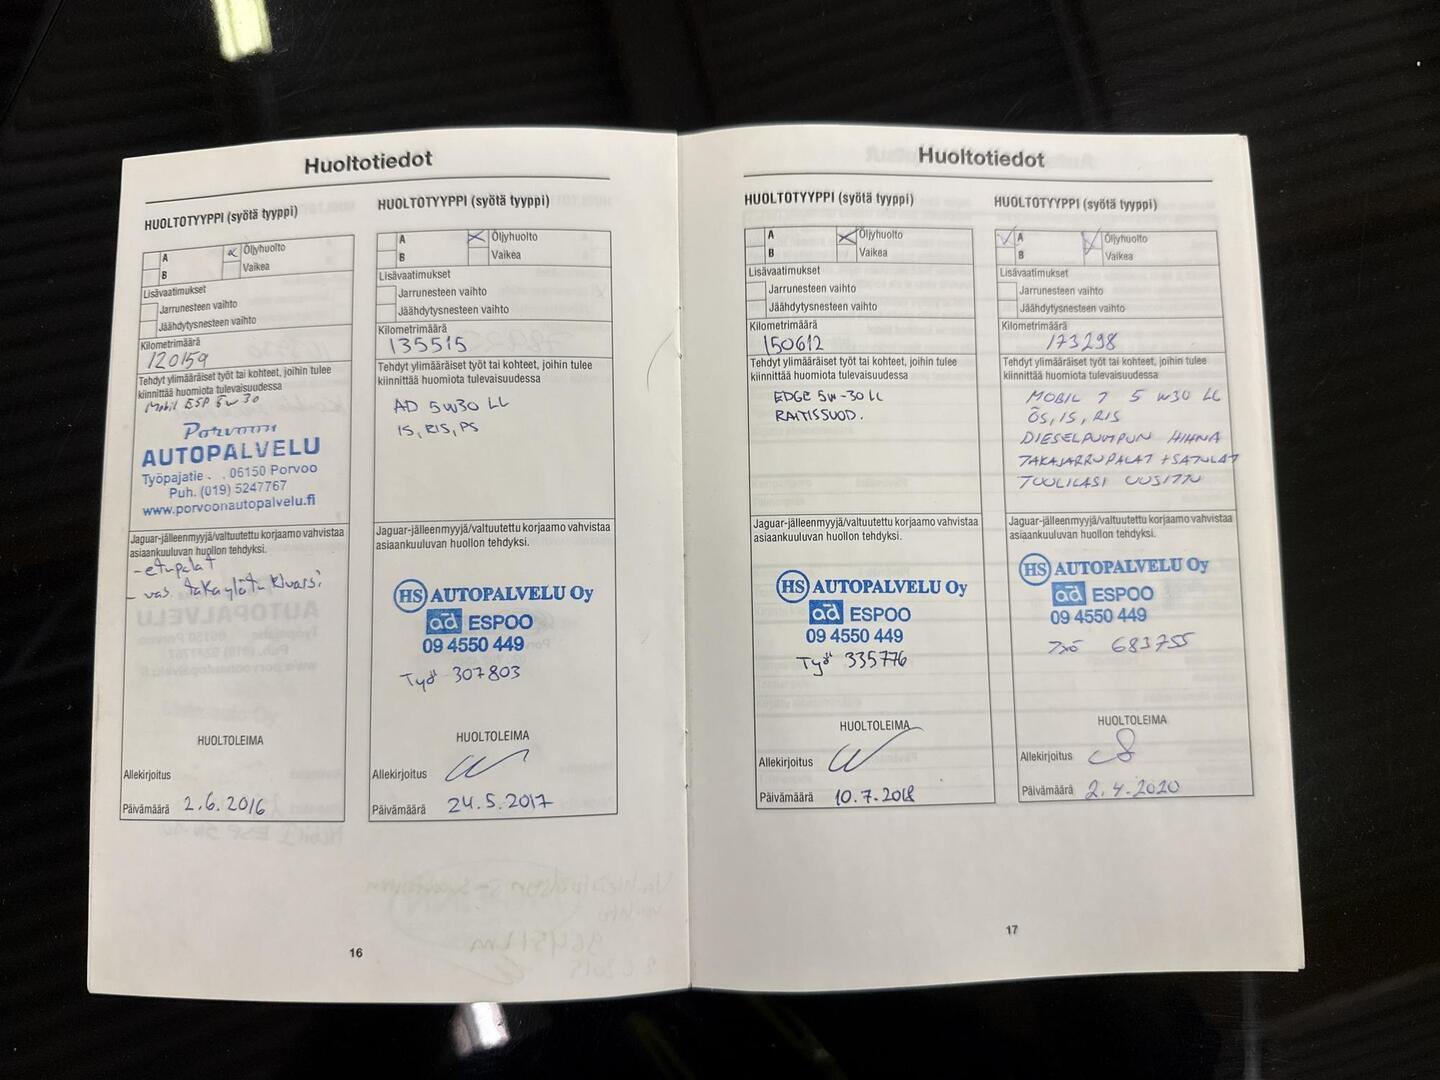 Huoltotiedot
HUOLTOTYYPPI (syötä tyyppi)
A
Öljyhuolto
B
Vaikea
Lisävaatimukset
Jarrunesteen vaihto
Jäähdytysnesteen vaihto
Kilometrimäärä
120159
Tehdyt ylimääräiset työt tai kohteet, joihin tulee
kiinnittää huomiota tulevaisuudessa
Mobil ESP 5w30
Porvoon
AUTOPALVELU
Työpajatie . , 06150 Porvoo
Puh. (019) 5247767
www.porvoonautopalvelu.fi
Jaguar-jälleenmyyjä/valtuutettu korjaamo vahvistaa
asiaankuuluvan huollon tehdyksi.
- etupalat
- vas. takaylätukivarsi
HUOLTOLEIMA
Allekirjoitus
Päivämäärä 2.6.2016
HUOLTOTYYPPI (syötä tyyppi)
A
Öljyhuolto
B
Vaikea
Lisävaatimukset
Jarrunesteen vaihto
Jäähdytysnesteen vaihto
Kilometrimäärä
135515
Tehdyt ylimääräiset työt tai kohteet, joihin tulee
kiinnittää huomiota tulevaisuudessa
AD 5W30 LL
IS, RIS, PS
Jaguar-jälleenmyyjä/valtuutettu korjaamo vahvistaa
asiaankuuluvan huollon tehdyksi.
HS AUTOPALVELU Oy
ad ESPOO
09 4550 449
Työ 307803
HUOLTOLEIMA
Allekirjoitus
Päivämäärä 24.5.2017
16
Huoltotiedot
HUOLTOTYYPPI (syötä tyyppi)
A
Öljyhuolto
B
Vaikea
Lisävaatimukset
Jarrunesteen vaihto
Jäähdytysnesteen vaihto
Kilometrimäärä
150612
Tehdyt ylimääräiset työt tai kohteet, joihin tulee
kiinnittää huomiota tulevaisuudessa
EDGE 5W-30 LL
RAITISSUOD.
Jaguar-jälleenmyyjä/valtuutettu korjaamo vahvistaa
asiaankuuluvan huollon tehdyksi.
HS AUTOPALVELU Oy
ad ESPOO
09 4550 449
Työ 335776
HUOLTOLEIMA
Allekirjoitus
Päivämäärä 10.7.2018
HUOLTOTYYPPI (syötä tyyppi)
A
Öljyhuolto
B
Vaikea
Lisävaatimukset
Jarrunesteen vaihto
Jäähdytysnesteen vaihto
Kilometrimäärä
173298
Tehdyt ylimääräiset työt tai kohteet, joihin tulee
kiinnittää huomiota tulevaisuudessa
MOBIL 1 5 W30 LL
ÖS, IS, RIS
DIESELPUMPUN HIHNA
TAKAJARRUPALAT + SATULAT
TUULILASI UUSITTU
Jaguar-jälleenmyyjä/valtuutettu korjaamo vahvistaa
asiaankuuluvan huollon tehdyksi.
HS AUTOPALVELU Oy
ad ESPOO
09 4550 449
Työ 683755
HUOLTOLEIMA
Allekirjoitus
Päivämäärä 2.4.2020
17